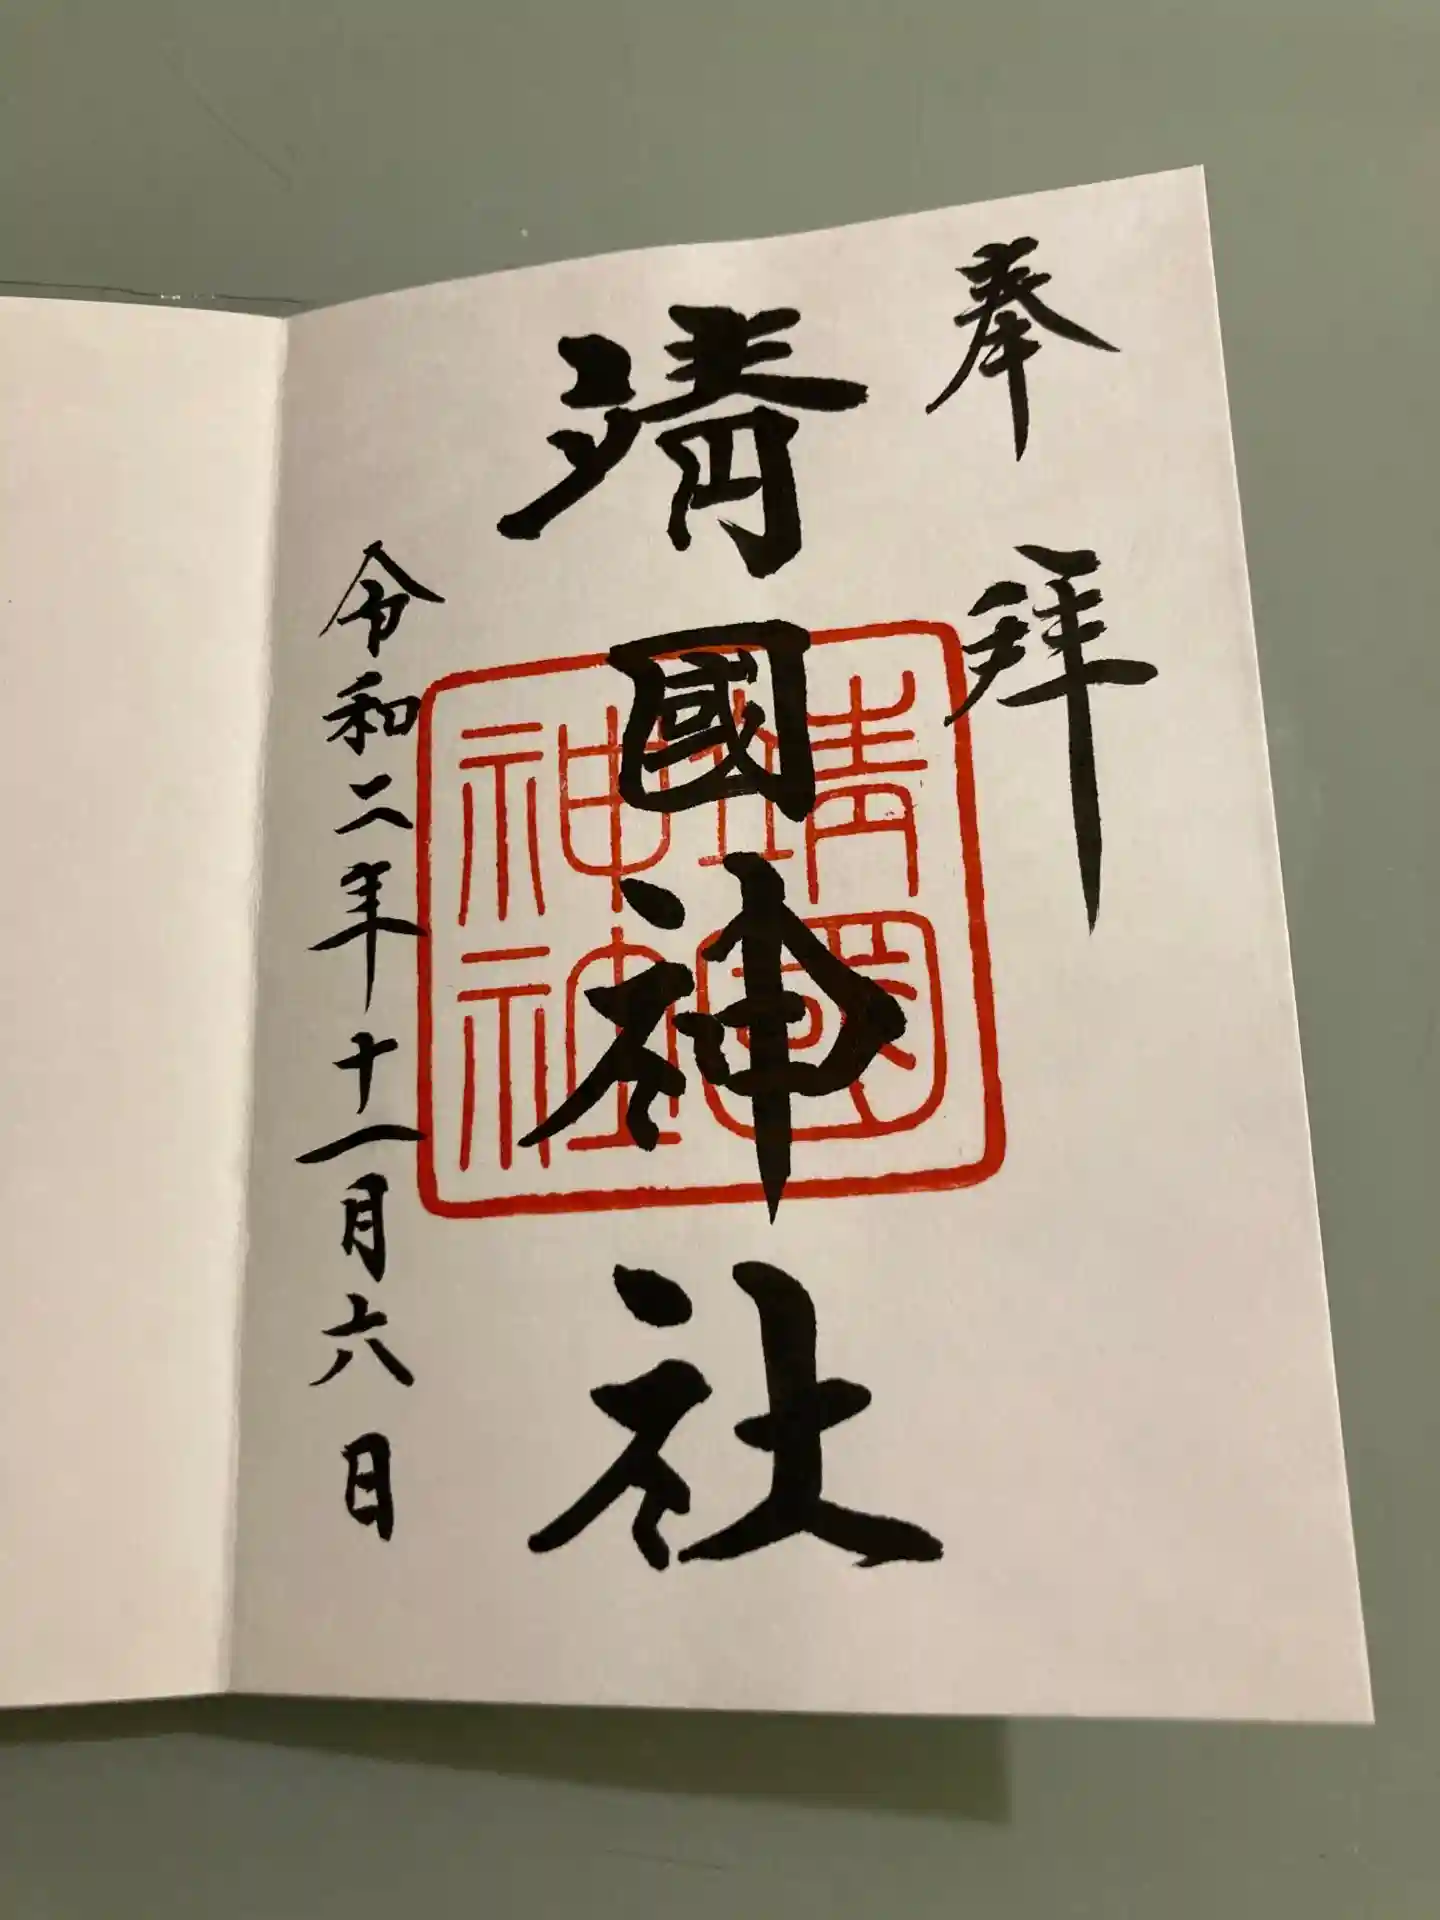 奉拜
靖國神社
令和二年十一月六日
靖國
神社